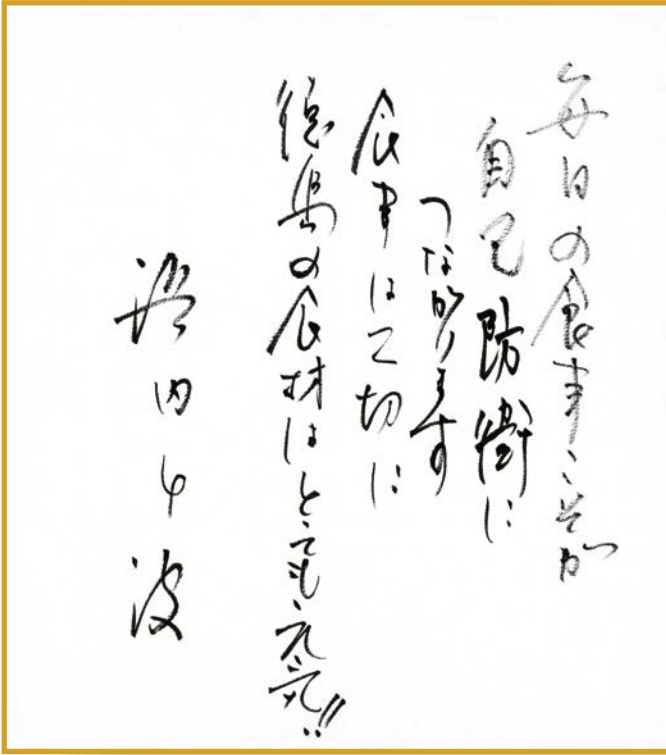 毎日の食事こそが
自己防衛に
つながります
食事は大切に
徳島の食材はとっても元気!!
浜内千波